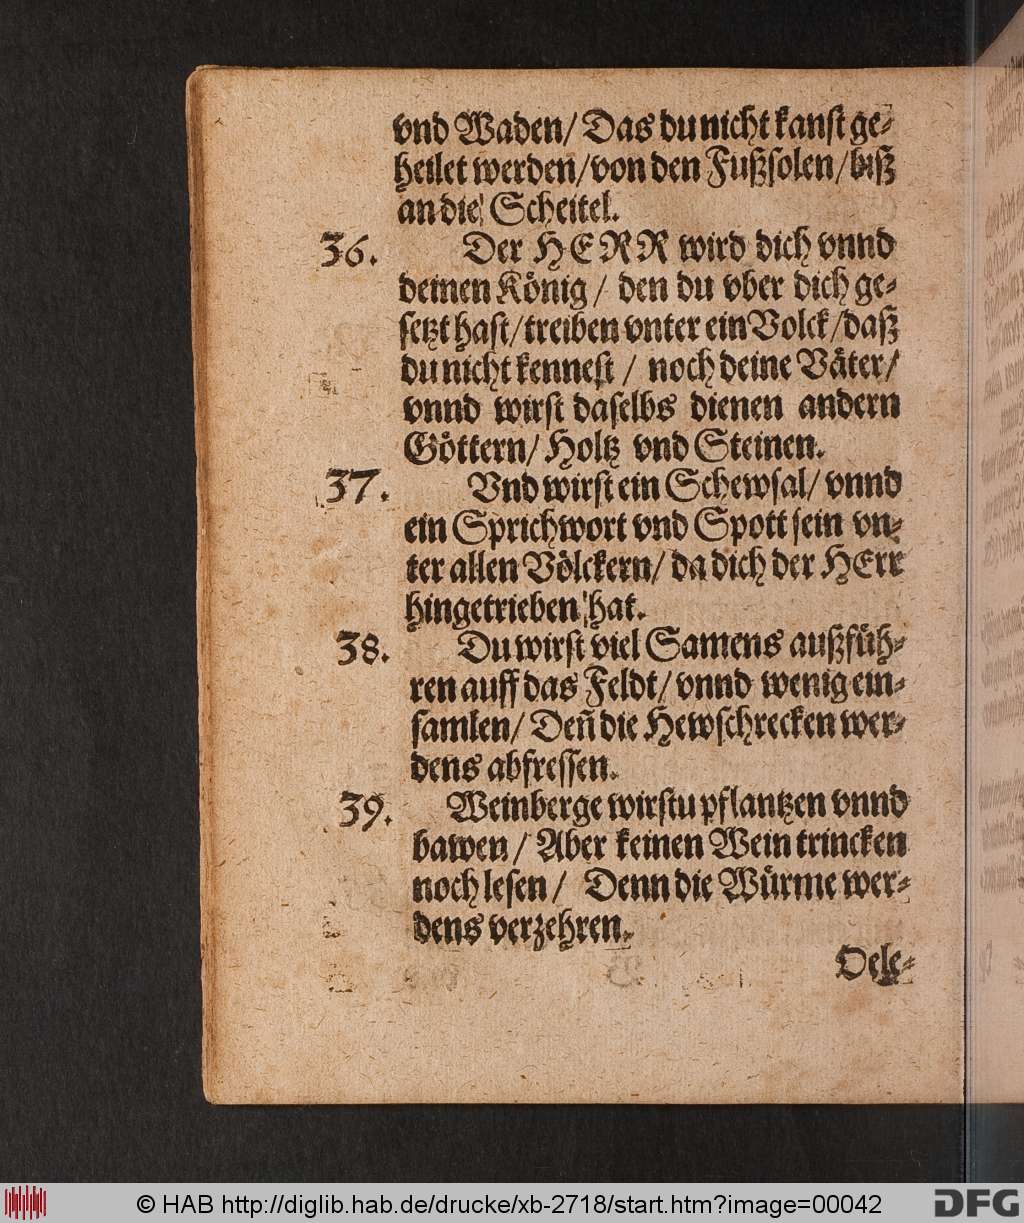 vnd Waden/ Das du nicht kanst ge-
heilet werden/ von den Fußsolen/ biß
an die Scheitel.
36. Der HERR wird dich vnnd
deinen König/ den du vber dich ge-
setzt hast/ treiben vnter ein Volck/ daß
du nicht kennest/ noch deine Väter/
vnnd wirst daselbs dienen andern
Göttern/ Holtz vnd Steinen.
37. Vnd wirst ein Schewsal/ vnnd
ein Sprichwort vnd Spott sein vn-
ter allen Völckern/ da dich der HErr
hingetrieben hat.
38. Du wirst viel Samens außfüh-
ren auff das Feldt/ vnnd wenig ein-
samlen/ Deñ die Hewschrecken wer-
dens abfressen.
39. Weinberge wirstu pflantzen vnnd
bawen/ Aber keinen Wein trincken
noch lesen/ Denn die Würme wer-
dens verzehren.
Oele-
© HAB http://diglib.hab.de/drucke/xb-2718/start.htm?image=00042
DFG